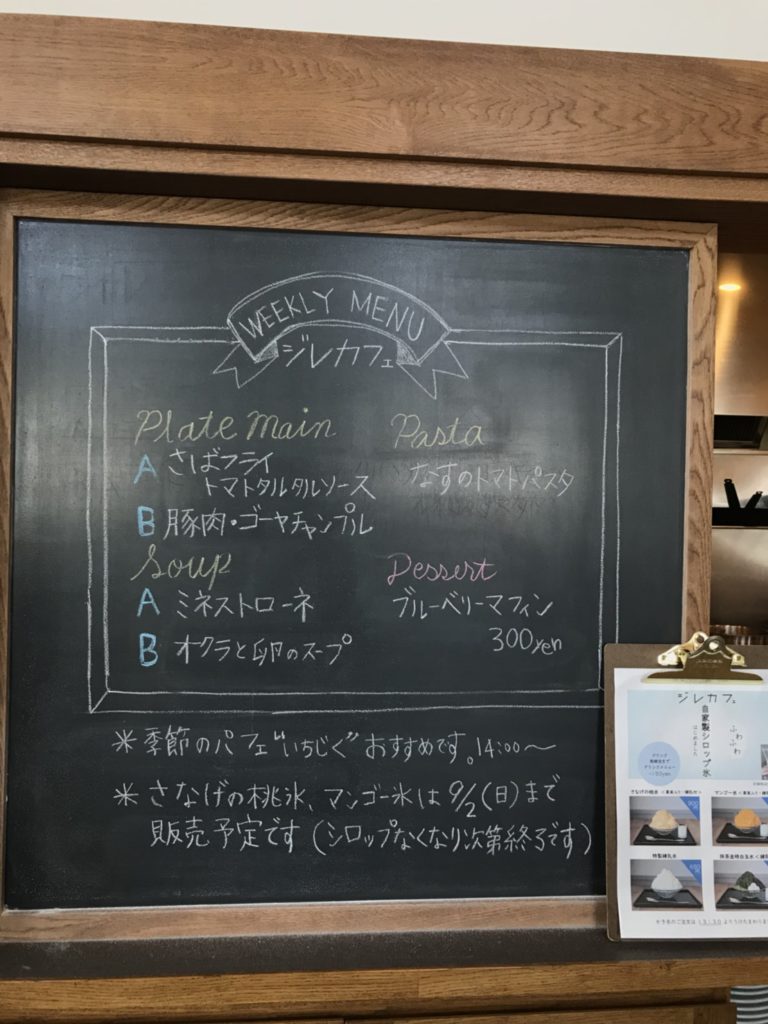 WEEKLY MENU
ジレカフェ
Plate Main
A さばフライ
トマトタルタルソース
B 豚肉・ゴーヤチャンプル
Soup
A ミネストローネ
B オクラと卵のスープ
Pasta
なすのトマトパスタ
Dessert
ブルーベリーマフィン
300yen
＊季節のパフェ"いちじく"おすすめです。14:00〜
＊さなげの桃氷、マンゴー氷は9/2(日)まで
販売予定です(シロップなくなり次第終了です)
ジレカフェ
ふわふわ
自家製シロップ氷
はじめました
さなげの桃氷
マンゴー氷
特製練乳氷